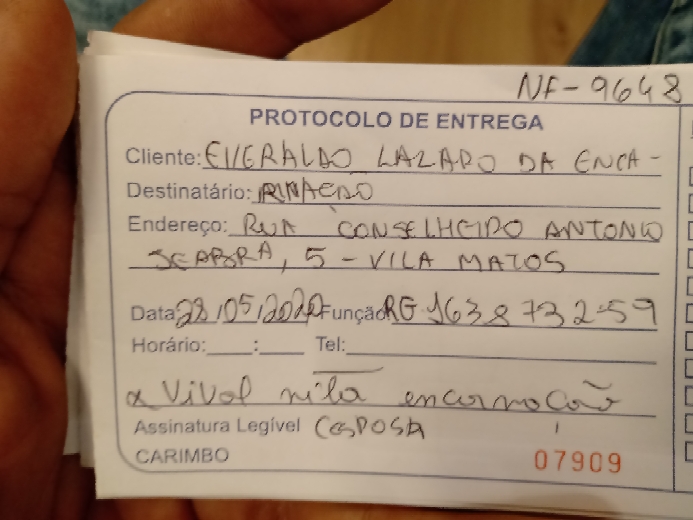 NF-9648
PROTOCOLO DE ENTREGA
Cliente: EVERALDO LAZARO DA ENCA-
Destinatário: RNAÇÃO
Endereço: RUA CONSELHEIRO ANTONIO
SEABRA, 5 - VILA MATOS
Data: 28/05/2020 Função: RG 1638732-59
Horário: : Tel:
encarnação
Assinatura Legível ESPOSA
CARIMBO 07909